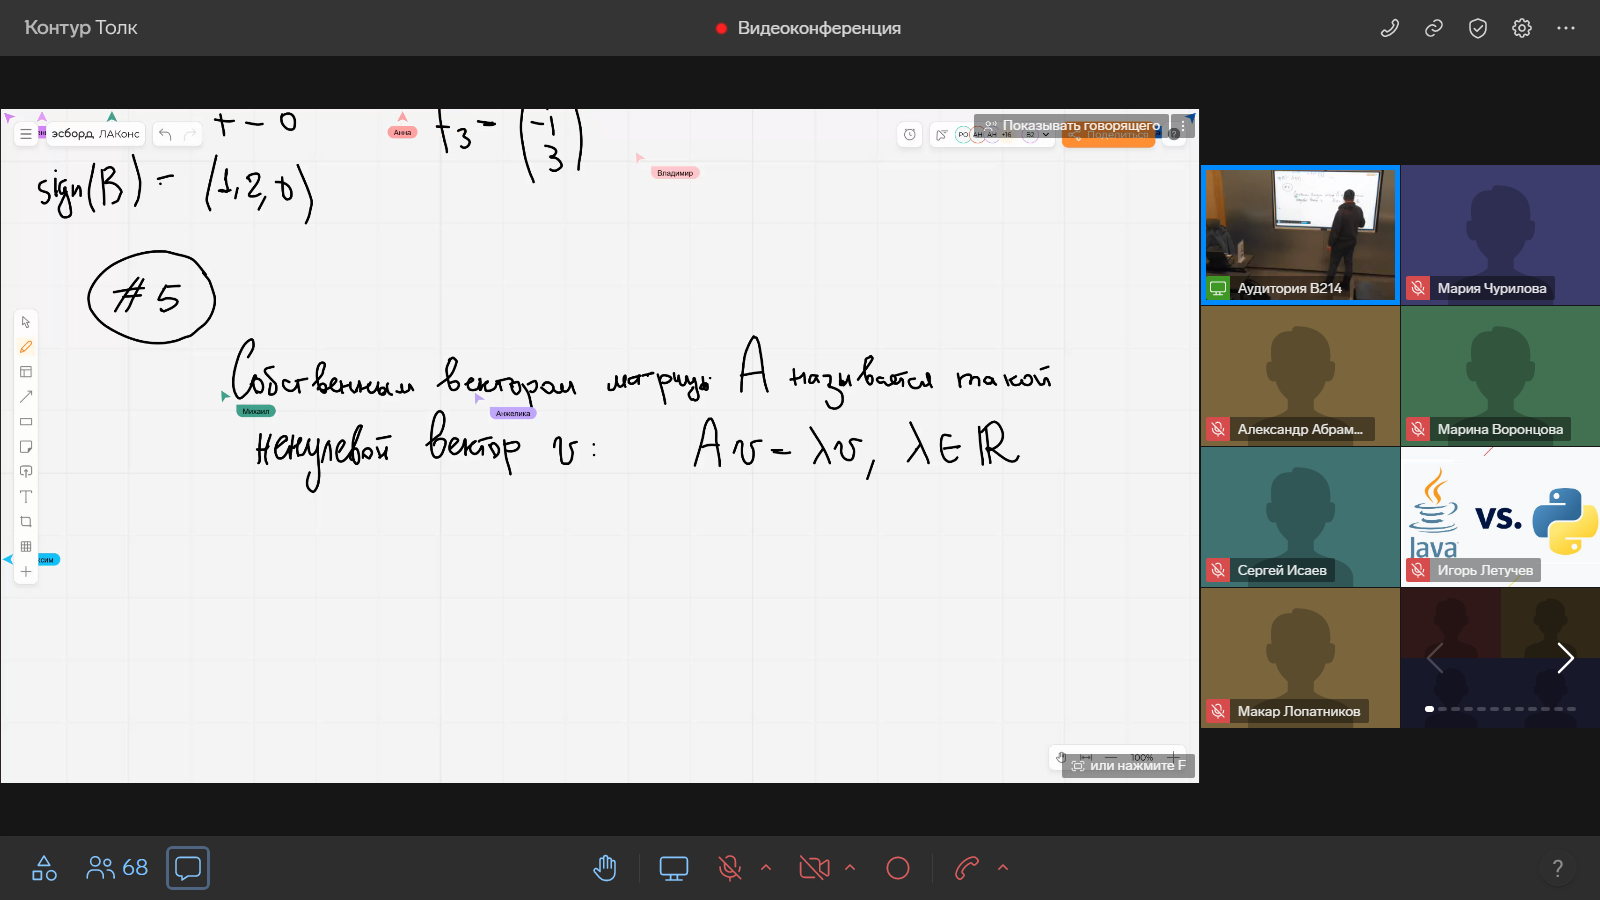 Контур Толк
Видеоконференция
+ - 0
t₃ = (-1 3)
эсборд, ЛАКонс
Анна
Показывать говорящего
Владимир
sign(B) = (1,2,0)
#5
Собственным вектором матрицы A называется такой
Михаил
Анжелика
ненулевой вектор v: Av = λv, λ∈ℝ
ксим
100%
или нажмите F
Аудитория B214
Мария Чурилова
Александр Абрам...
Марина Воронцова
Сергей Исаев
Java vs.
Игорь Летучев
Макар Лопатников
68
?